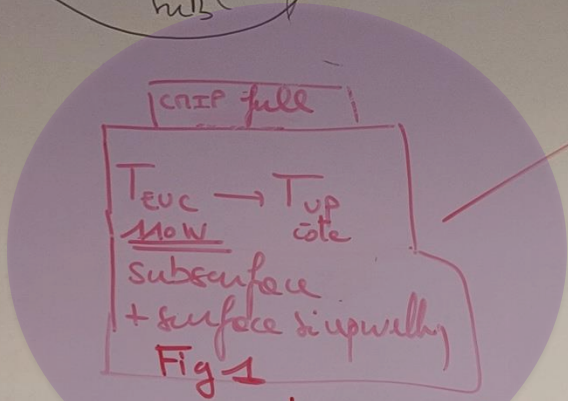 CMIP full
T EUC → T UP
110W côte
subsurface
+ surface si upwelling
Fig 1